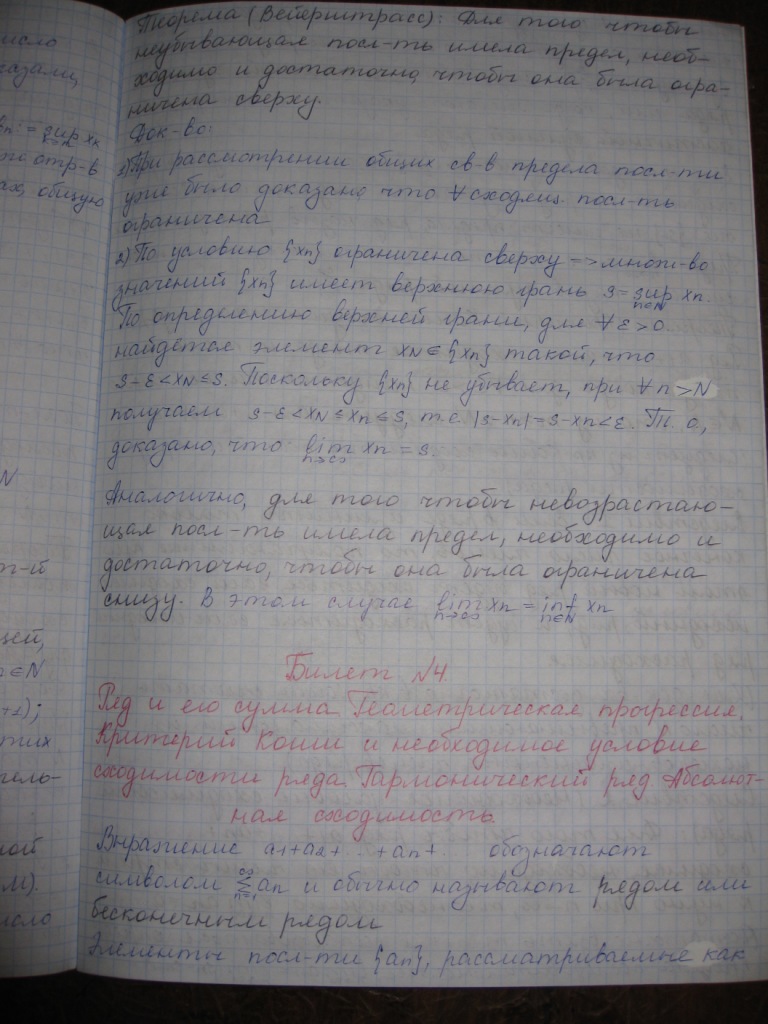 Теорема (Вейерштрасс): Для того чтобы
неубывающая посл-ть имела предел, необ-
ходимо и достаточно, чтобы она была огра-
ничена сверху.
Док-во:
1) При рассмотрении общих св-в предела посл-ти
уже было доказано, что ∀ сходящ. посл-ть
ограничена
2) По условию {xn} ограничена сверху => множ-во
значений {xn} имеет верхнюю грань s = sup xn.
n∈N
По определению верхней грани, для ∀ ε > 0
найдётся элемент xN ∈ {xn} такой, что
s-ε < xN ≤ s. Поскольку {xn} не убывает, при ∀ n > N
получаем s-ε < xN ≤ xn ≤ s, т.е. |s-xn| = s-xn < ε. Т. о.,
доказано, что lim xn = s.
n→∞
Аналогично, для того чтобы невозрастаю-
щая посл-ть имела предел, необходимо и
достаточно, чтобы она была ограничена
снизу. В этом случае lim xn = inf xn
n→∞ n∈N
Билет №4.
Ряд и его сумма. Геометрическая прогрессия.
Критерий Коши и необходимое условие
сходимости ряда. Гармонический ряд. Абсолют-
ная сходимость.
Выражение a1+a2+...+an+... обозначают
символом ∞∑n=1 an и обычно называют рядом или
бесконечным рядом
Элементы посл-ти {an}, рассматриваемые как
казали,
sup xk
отр-в
общую
N
т-й
щей,
∈N
+1);
тих
тель-
ной
М).